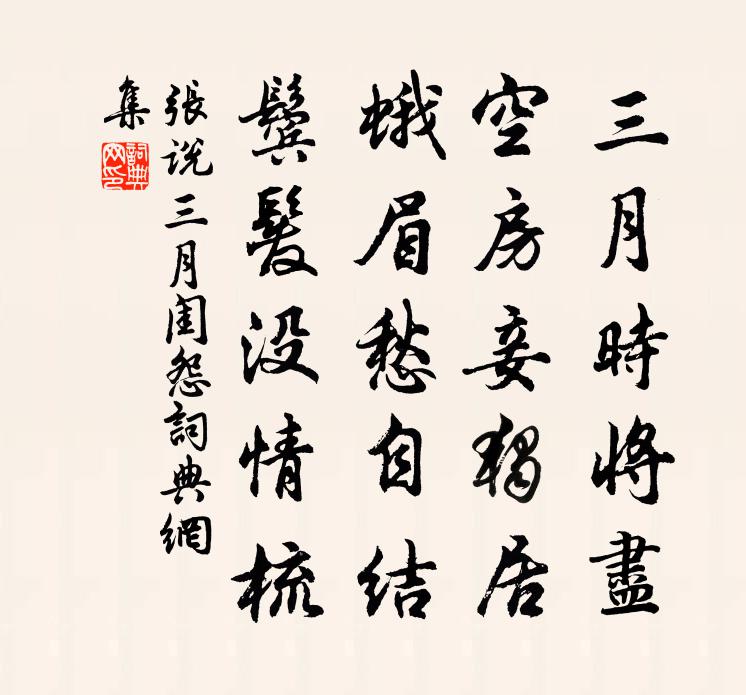 三月時將盡
空房妾獨居
蛾眉愁自結
鬓髮没情梳
張説三月閨怨詞典網
集
詞典網印